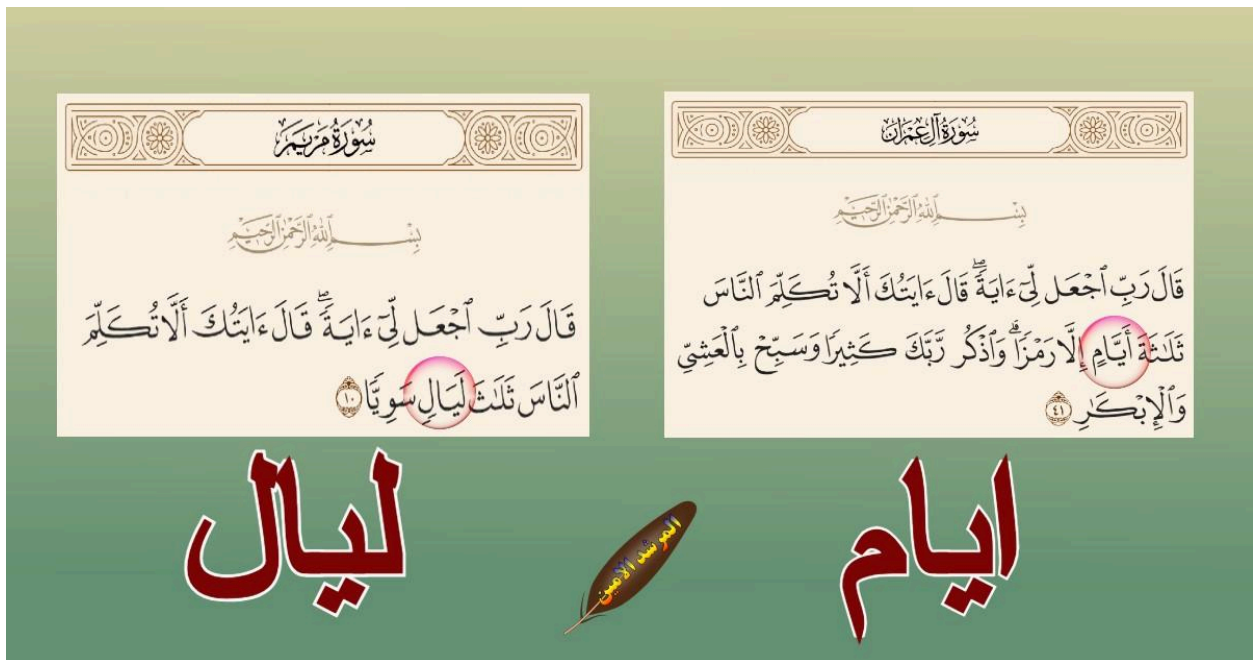 سُورَةُ آلِ عِمْرَانَ
بِسْمِ ٱللَّهِ ٱلرَّحْمَٰنِ ٱلرَّحِيمِ
قَالَ رَبِّ ٱجْعَل لِّىٓ ءَايَةًۖ قَالَ ءَايَتُكَ أَلَّا تُكَلِّمَ ٱلنَّاسَ
ثَلَٰثَةَ أَيَّامٍ إِلَّا رَمْزًاۗ وَٱذْكُر رَّبَّكَ كَثِيرًا وَسَبِّحْ بِٱلْعَشِىِّ
وَٱلْإِبْكَٰرِ ٤١
ايام
سُورَةُ مَرْيَمَ
بِسْمِ ٱللَّهِ ٱلرَّحْمَٰنِ ٱلرَّحِيمِ
قَالَ رَبِّ ٱجْعَل لِّىٓ ءَايَةًۖ قَالَ ءَايَتُكَ أَلَّا تُكَلِّمَ
ٱلنَّاسَ ثَلَٰثَ لَيَالٍ سَوِيًّا ١٠
ليال
المرشد الامين